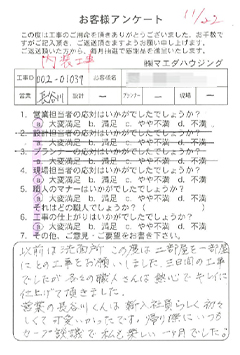 お客様アンケート
11/22
この度は工事のご用命を頂きありがとうございました。お手数で
すがご記入頂き、ご返送頂きますようお願い申し上げます。
ご返送頂いた方から、毎月抽選で感謝品を進呈いたします。
内装工事
㈱マエダハウジング
工事ID 002-01039 お客様名
営業 長谷川 設計 ー プランナー ー 現場 ー
1. 営業担当者の応対はいかがでしたでしょうか?
a 大変満足 b. 満足 c. やや不満 d. 不満
2. 設計担当者の応対はいかがでしたでしょうか?
a. 大変満足 b. 満足 c. やや不満 d. 不満
3. プランナーの応対はいかがでしたでしょうか?
a. 大変満足 b. 満足 c. やや不満 d. 不満
4. 現場担当者の応対はいかがでしたでしょうか?
a 大変満足 b. 満足 c. やや不満 d. 不満
5. 職人のマナーはいかがでしたでしょうか?
a 大変満足 b. 満足 c. やや不満 d. 不満
それはどの職人でしょうか? ( )
6. 工事の仕上がりはいかがでしたでしょうか?
a 大変満足 b. 満足 c. やや不満 d. 不満
7. その他、ご意見・ご要望をお書き下さい。
以前は洗面所 この度は二部屋を一部屋
にとの工事をお願いしました。三日間の工事
でしたが 各々の職人さんは熱心でキレイに
仕上げて頂きました。
営業の長谷川くんは新入社員らしく初々
しくて可愛いかったです。帰り際にいつも
談議で私も楽しい一ヶ月でした。